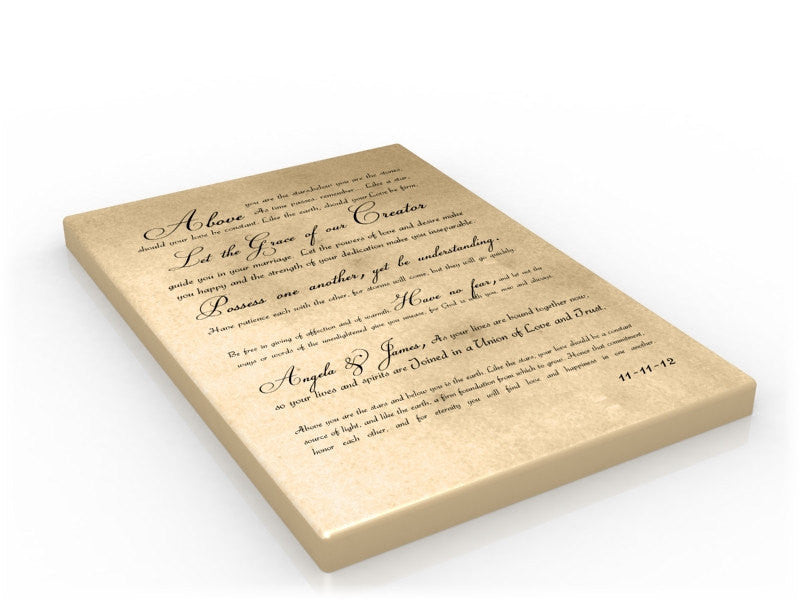 you are the stars,below you are the stones,
Above As time passes, remember... Like a star,
should your love be constant. Like the earth, should your Love be firm.
Let the Grace of our Creator
guide you in your marriage. Let the powers of love and desire make
you happy and the strength of your dedication make you inseparable.
Possess one another, yet be understanding.
Have patience each with the other, for storms will come, but they will go quickly.
Be free in giving of affection and of warmth. Have no fear, and let not the
ways or words of the unenlightened give you unease, for God is with you, now and always.
Angela & James, As your lives are bound together now,
so your lives and spirits are Joined in a Union of Love and Trust.
Above you are the stars and below you is the earth. Like the stars, your love should be a constant
source of light, and like the earth, a firm foundation from which to grow. Honor that commitment,
honor each other, and for eternity you will find love and happiness in one another
11-11-12